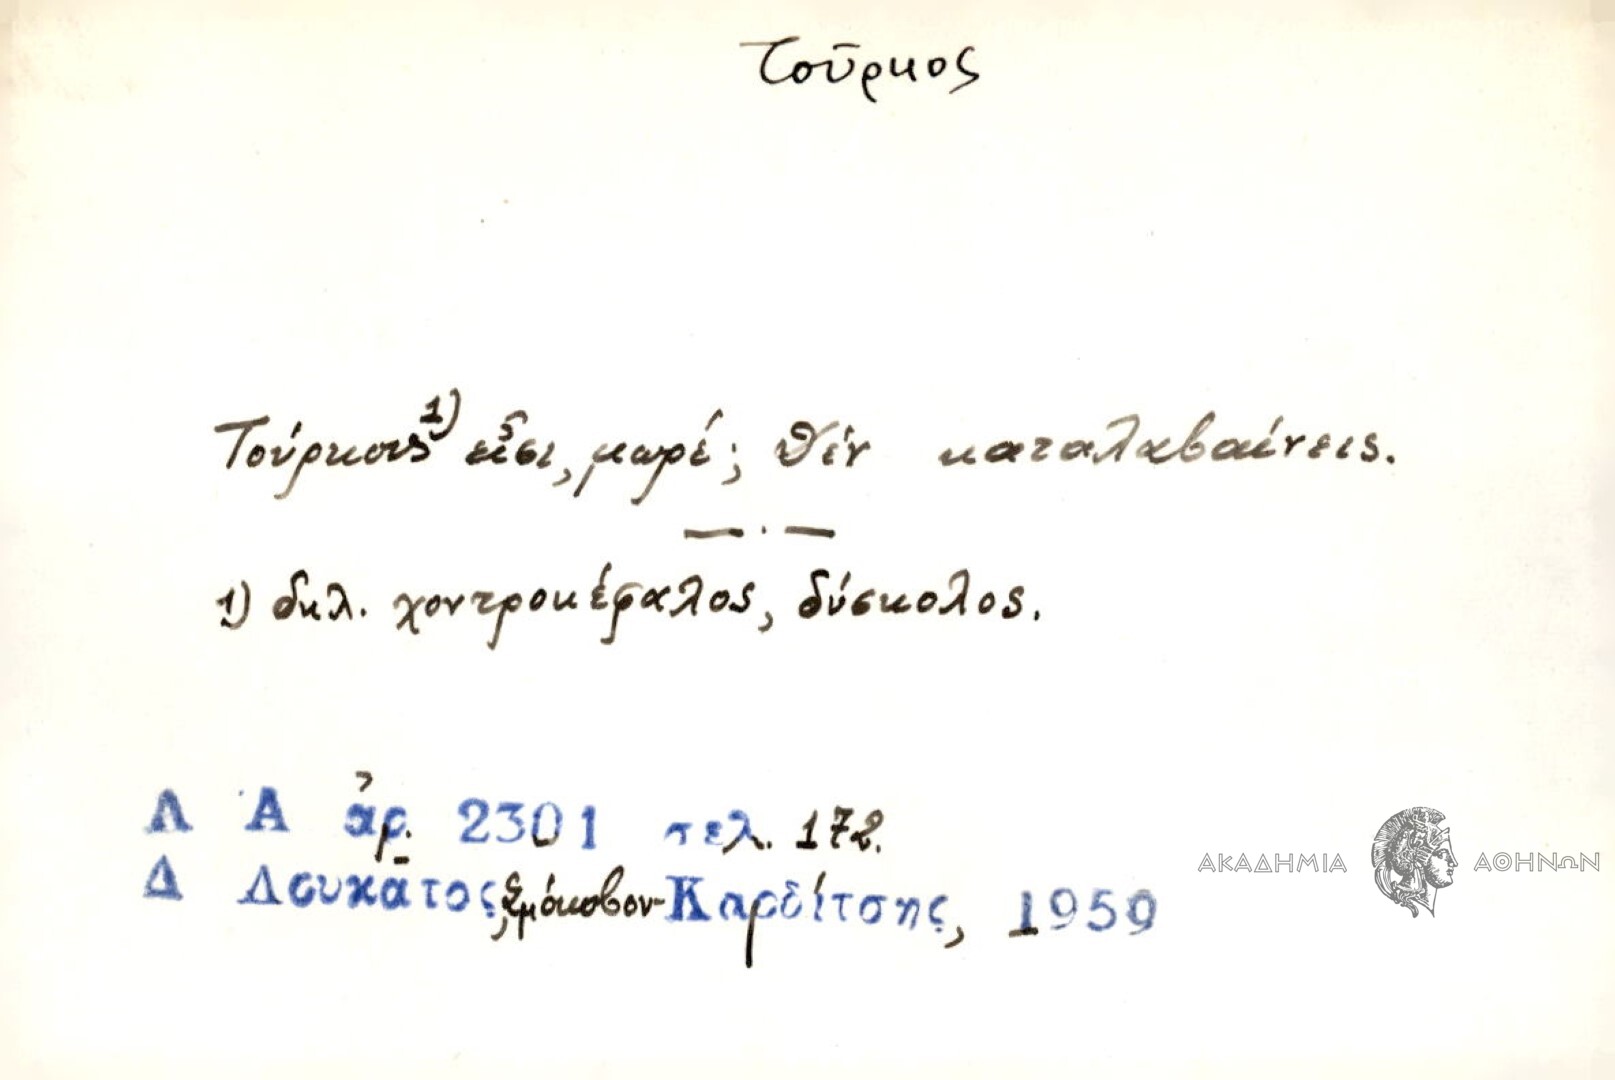 Τοῦρκος
Τούρκους¹⁾ εἶσι, μωρέ; Δέν καταλαβαίνεις.
— · —
1) δηλ. χοντροκέφαλος, δύσκολος.
Λ Α ἀρ. 2301 σελ. 172.
Δ Λουκᾶτος, Σμόκοβον-Καρδίτσης, 1959
ΑΚΑΔΗΜΙΑ ΑΘΗΝΩΝ